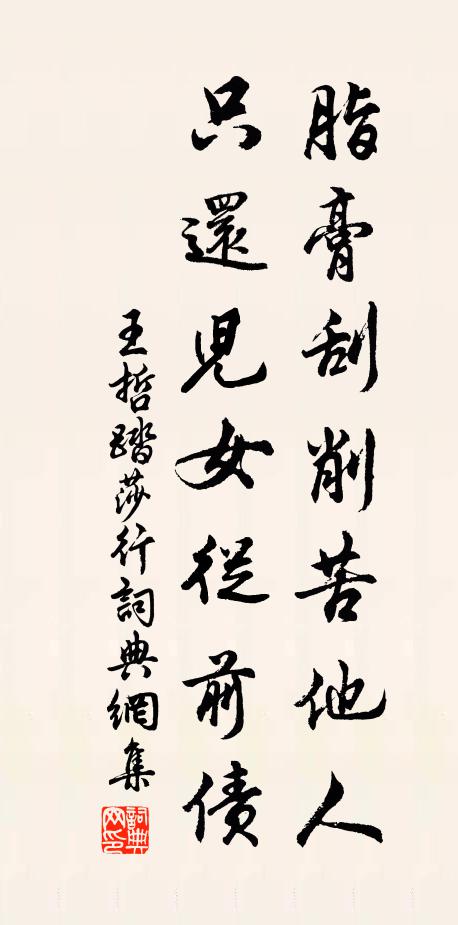 脂膏刮削苦他人
只還児女從前債
王哲踏莎行詞典網集
詞典網印